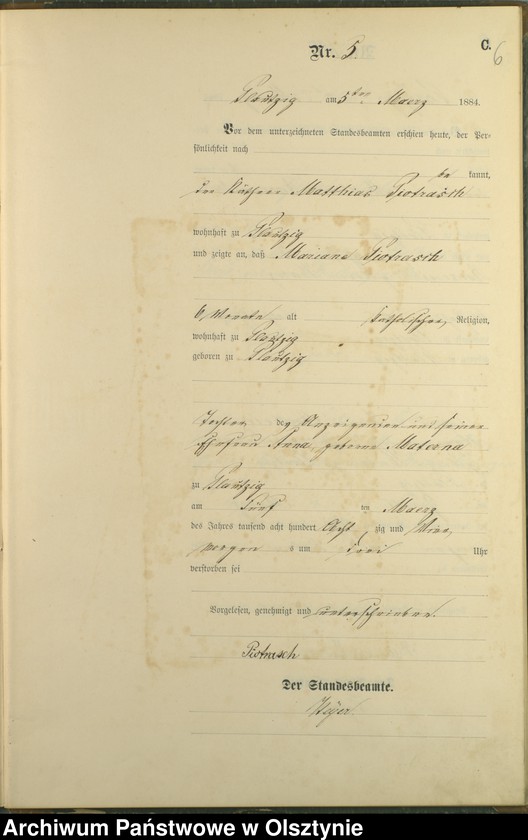 Nr. 5
C.
6
Plautzig am 5ten Maerz 1884.
Vor dem unterzeichneten Standesbeamten erschien heute, der Per-
sönlichkeit nach
be kannt,
der Käthner Matthias Piotrasch
wohnhaft zu Plautzig
und zeigte an, daß Mariane Piotrasch
6 Monate alt katholischer Religion,
wohnhaft zu Plautzig
geboren zu Plautzig
Tochter des Anzeigenden und seiner
Ehefrau Anna geborne Materna
zu Plautzig
am fünf ten Maerz
des Jahres tausend acht hundert acht zig und vier
morgen s um drei Uhr
verstorben sei
Vorgelesen, genehmigt und unterschrieben.
Piotrasch
Der Standesbeamte.
Archiwum Państwowe w Olsztynie